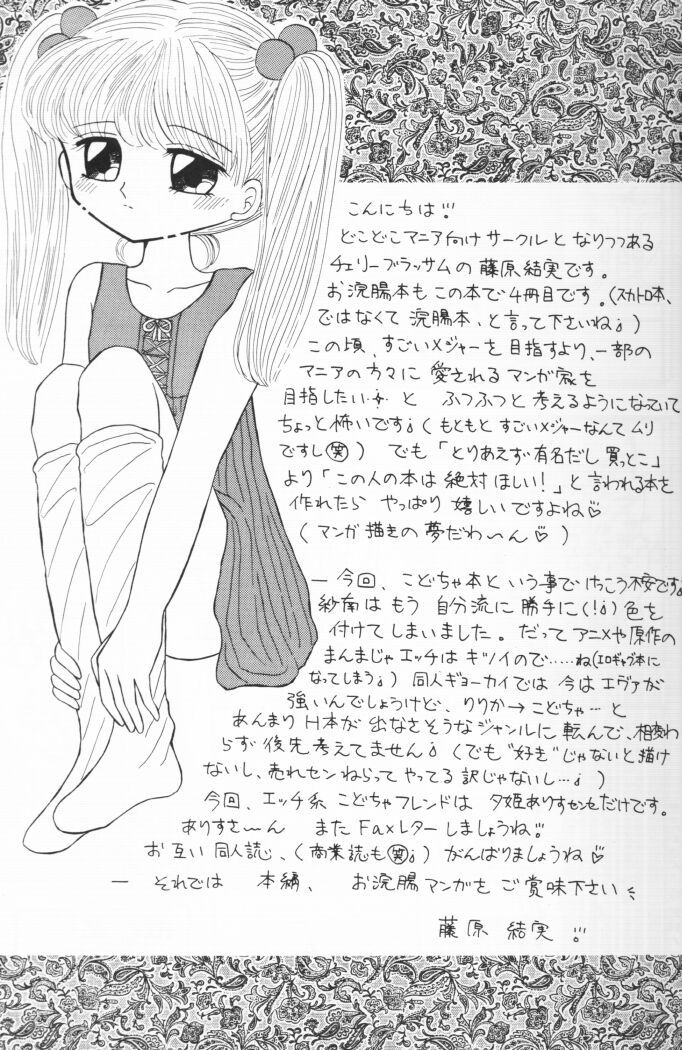 こんにちは!!
どこどこマニア向けサークルとなりつつある
チェリーブラッサムの藤原結実です。
お浣腸本もこの本で4冊目です。(スカトロ本、
ではなくて 浣腸本、と言って下さいね¡)
この頃、すごいメジャーを目指すより、一部の
マニアの方々に愛されるマンガ家を
目指したい…と ふつふつと考えるようになっていて
ちょっと怖いです¡(もともとすごいメジャーなんてムリ
ですし(笑)) でも「とりあえず有名だし買っとこ」
より「この人の本は絶対ほしい!」と言われる本を
作れたら やっぱり 嬉しいですよね♡
(マンガ描きの夢だわ〜ん♡)
― 今回、こどちゃ本という事でけっこう不安です。
紗南はもう 自分流に勝手に(!¡)色を
付けてしまいました。だってアニメや原作の
まんまじゃエッチはキツイので……ね(エロギャグ本に
なってしまう¡) 同人ギョーカイでは 今はエヴァが
強いんでしょうけど、りりか→こどちゃ…と
あんまりH本が出なさそうなジャンルに転んで、相変わ
らず後先考えてません¡(でも"好き"じゃないと描け
ないし、売れセンねらってやってる訳じゃないし…¡)
今回、エッチ系 こどちゃフレンドは 夕姫ありすセンセだけです。
ありすさ〜ん またFaxレターしましょうね!!
お互い同人誌、(商業誌も(笑)¡) がんばりましょうね♡
― それでは 本編、 お浣腸マンガをご賞味下さい
藤原 結実 !!